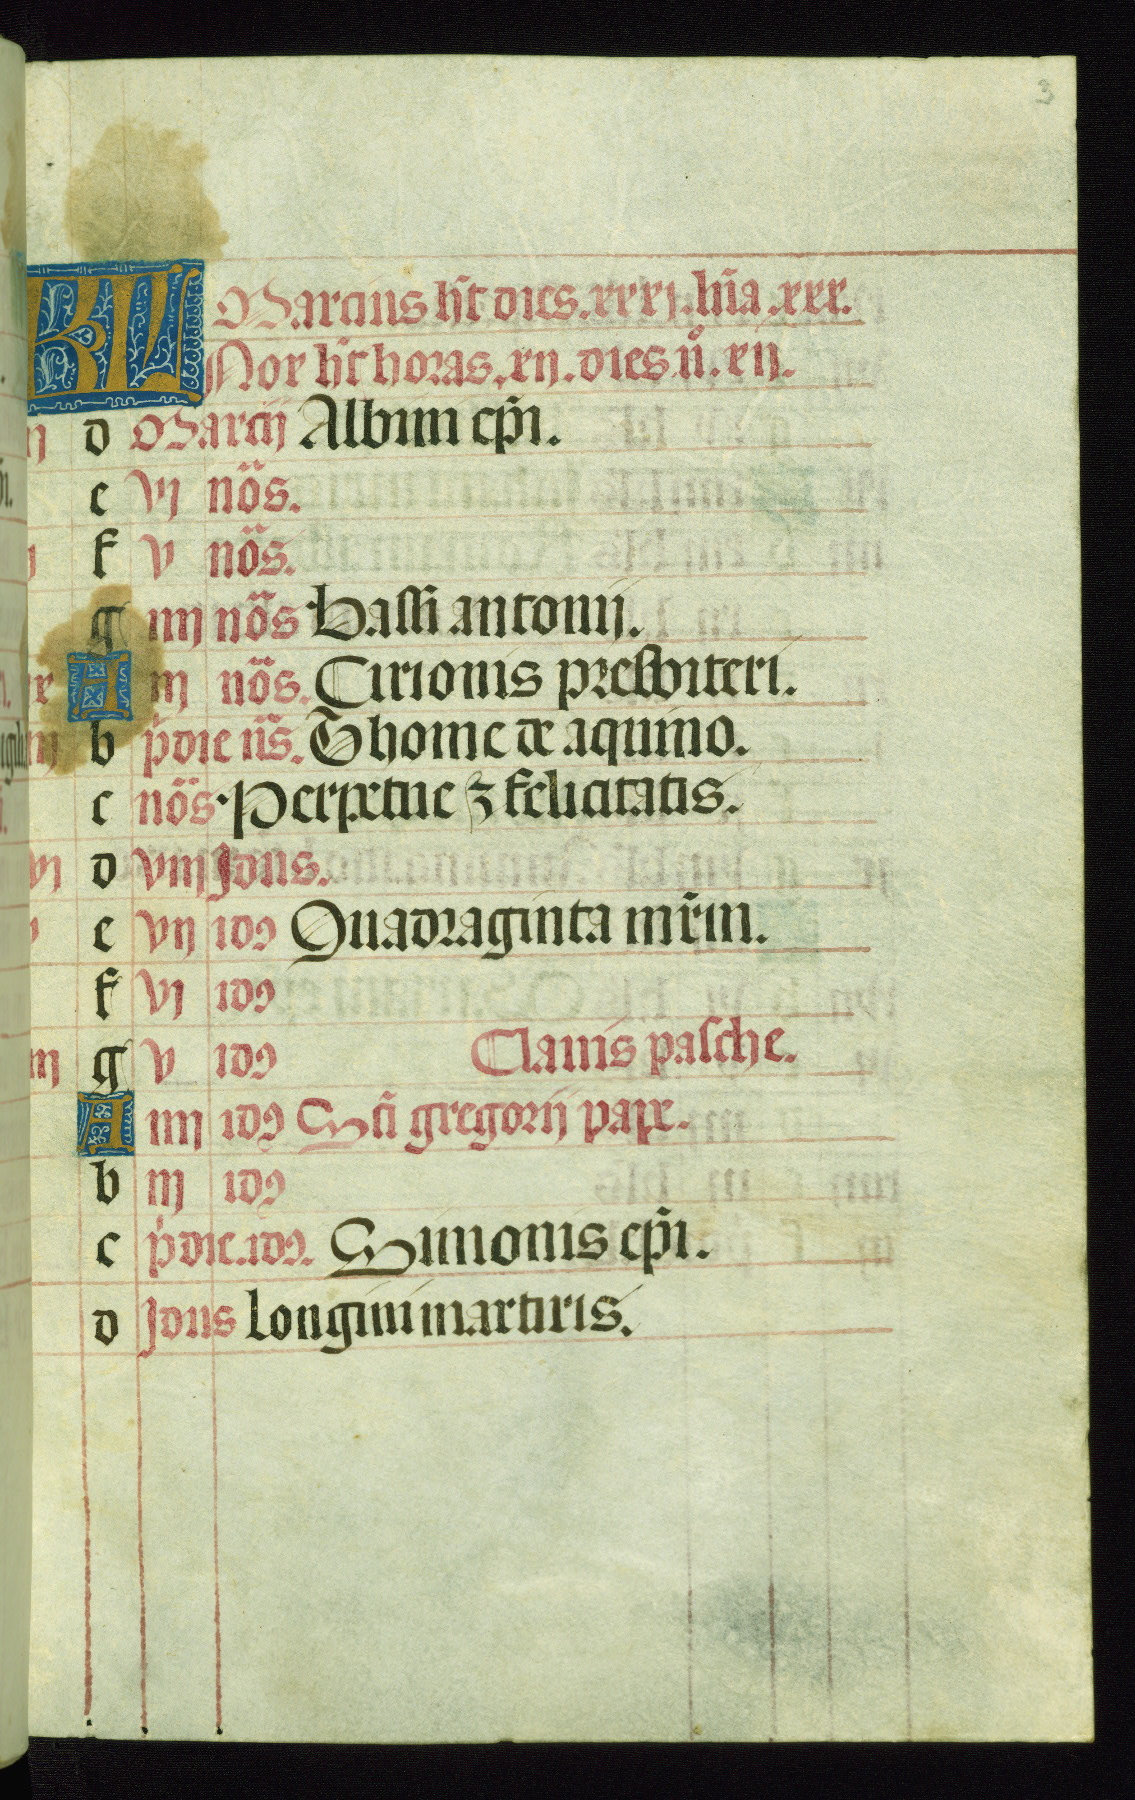 3
KL Marcius hr̄t dies. xxxi. lūa. xxx.
Nox hr̄t horas. xij. dies ů. xij.
d Marcij Albini ep̄i.
e vj nōs.
f v nōs.
g iiij nōs Bassi antonij.
A iij nōs. Cirionis presbiteri.
b p̍die n̄s. Thome de aquino.
c nōs. Perpetue ⁊ felicitatis.
vj d viij Idus.
v e vij idꝰ Quadraginta mr̄m.
f vj idꝰ
g v idꝰ Clauis pasche.
A iiij idꝰ Sc̄i gregorij pape.
b iij idꝰ
c p̍die. idꝰ. Simonis ep̄i.
d Idus longini martiris.